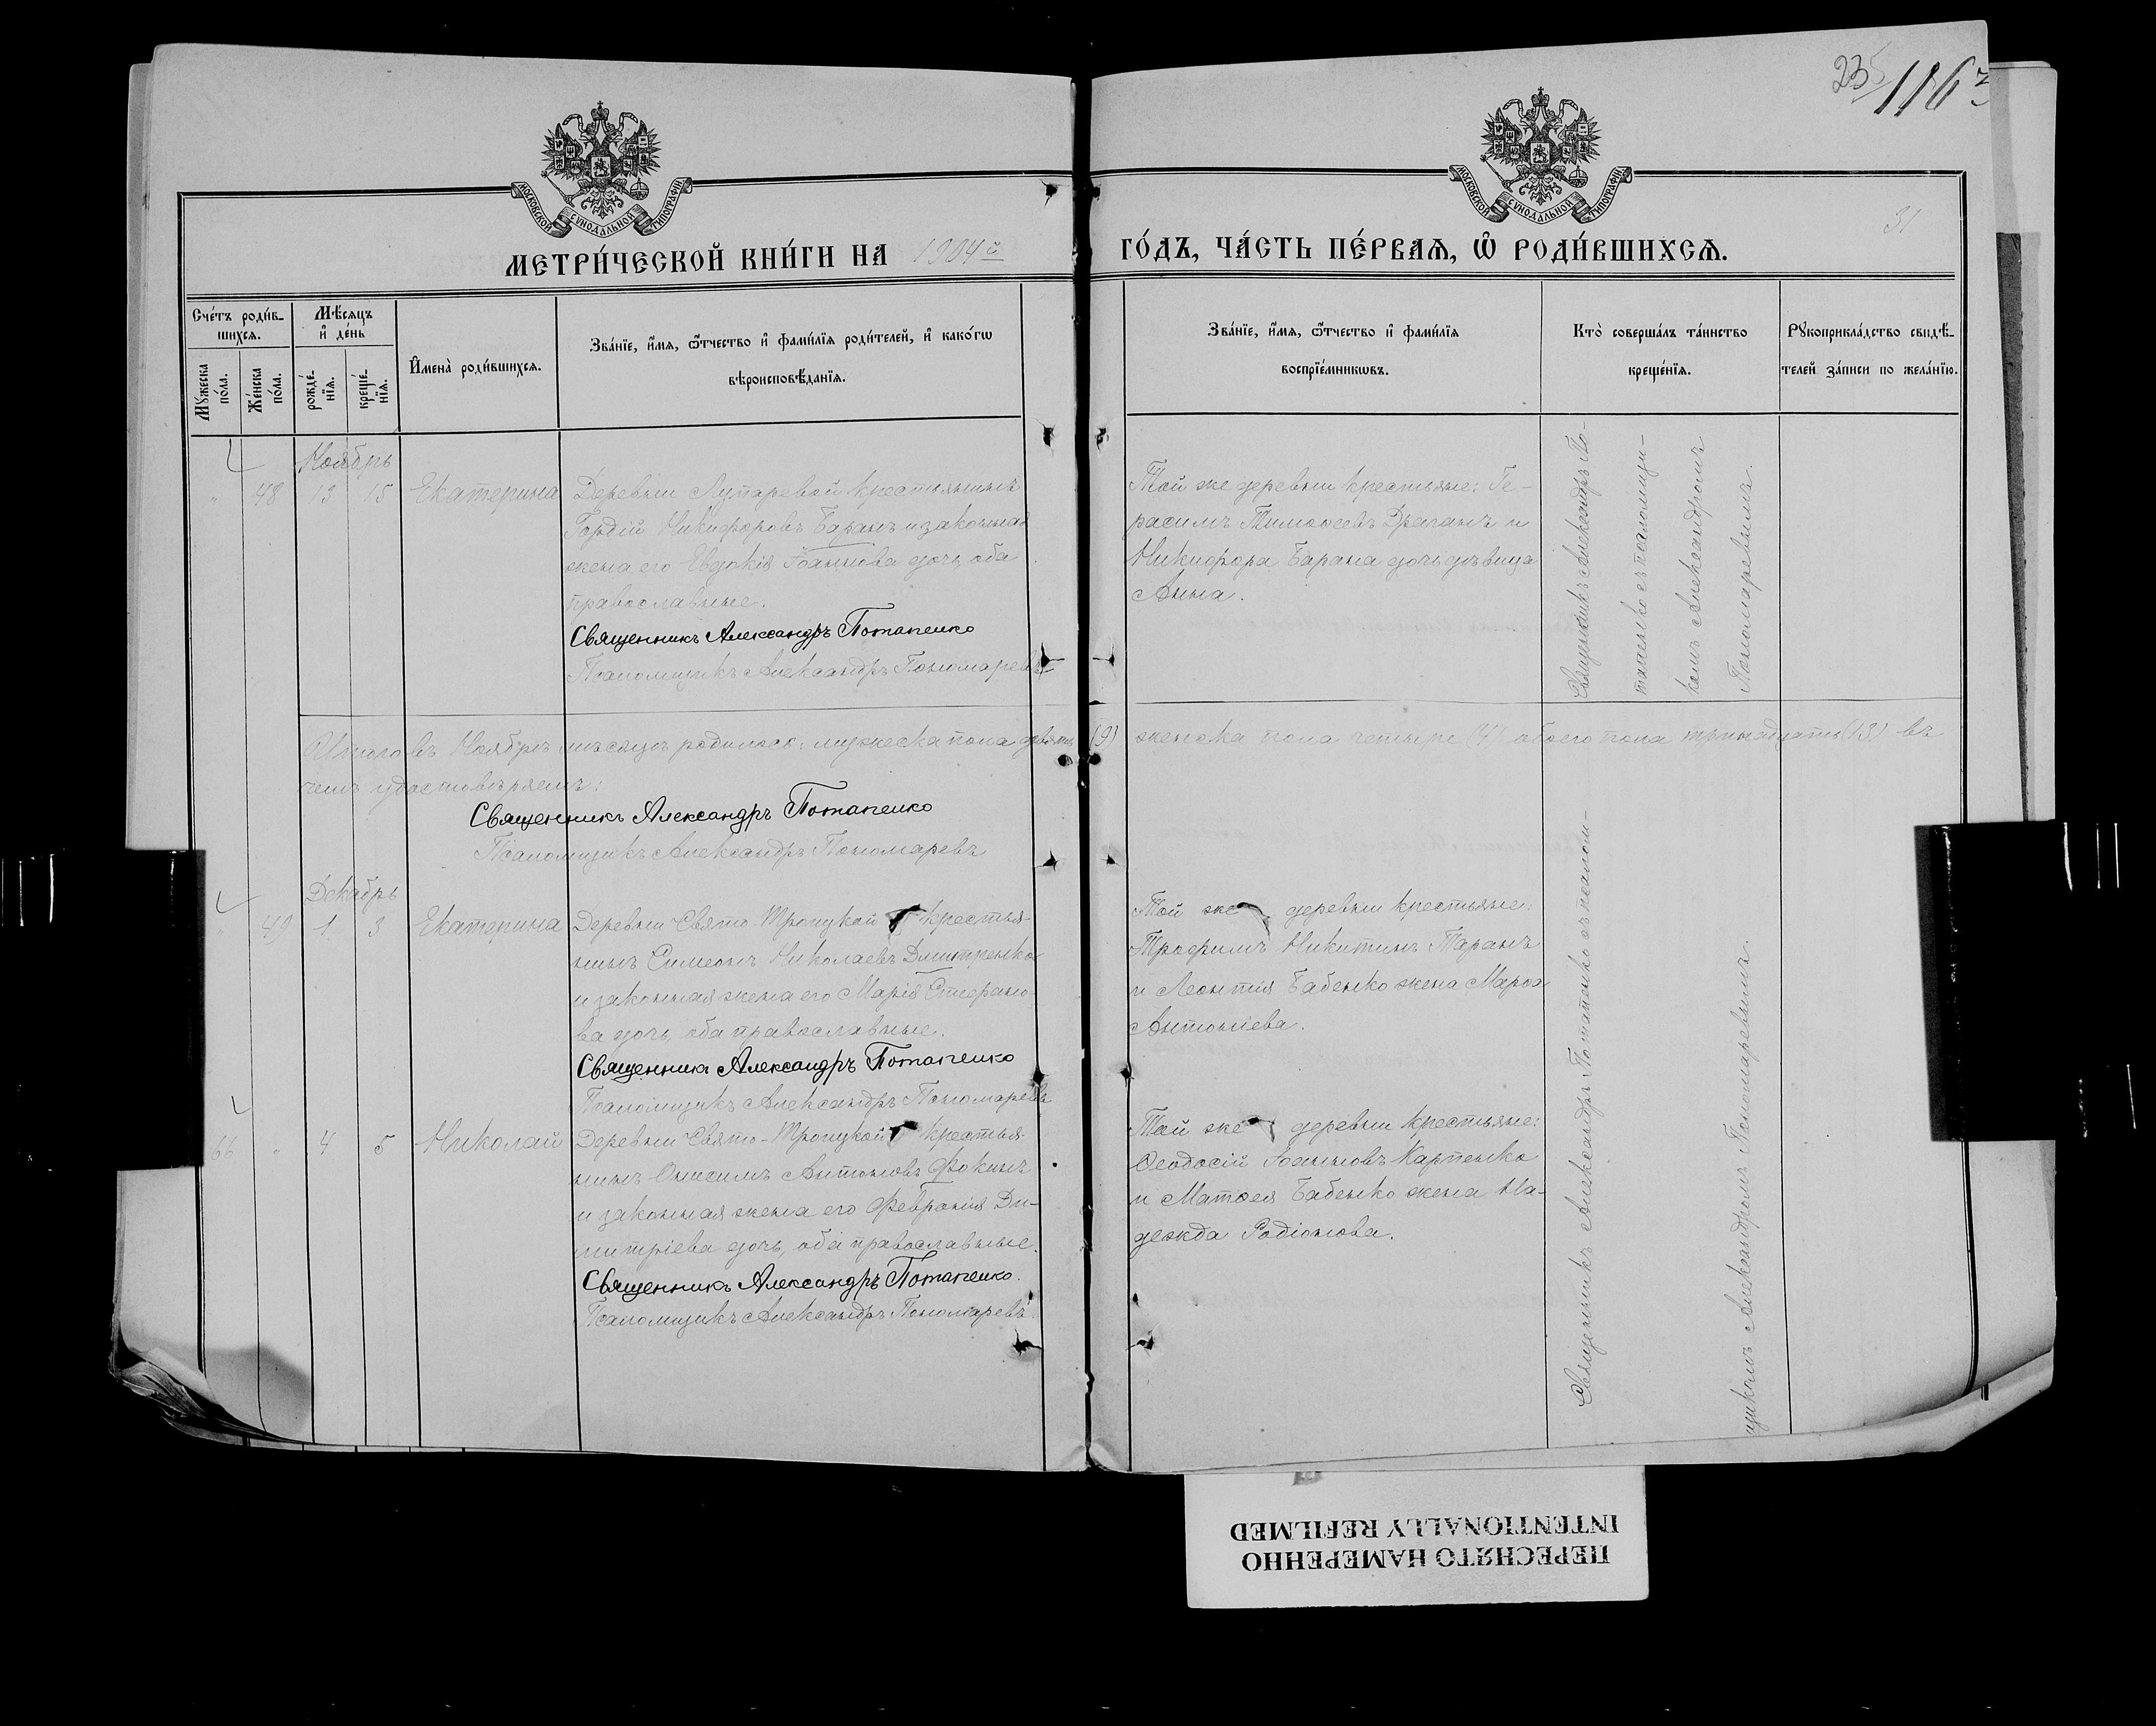 235
1167
31
МОСКОВСКОЙ СѴНОДАЛЬНОЙ ТИПОГРАФІИ
МОСКОВСКОЙ СѴНОДАЛЬНОЙ ТИПОГРАФІИ
МЕТРИ́ЧЕСКОЙ КНИ́ГИ НА 1904й
ГО́ДЪ, ЧА́СТЬ ПЕ́РВАѦ, Ѡ҆ РОДИ́ВШИХСѦ.
Сче́тъ роди́в-
шихсѧ.
Мꙋ́жеска по́ла.
Же́нска по́ла.
Мѣ́сѧцъ
и҆ де́нь
рожде́-
нїѧ.
креще́-
нїѧ.
И҆мена̀ роди́вшихсѧ.
Зва́нїе, и҆́мѧ, ѻ҆́тчество и҆ фами́лїѧ роди́телей, и҆ како́гѡ
вѣроисповѣ́данїѧ.
Зва́нїе, и҆́мѧ, ѻ҆́тчество и҆ фами́лїѧ
воспрїе́мникѡвъ.
Кто̀ соверша́лъ та́инство
креще́нїѧ.
Рꙋкоприкла́дство свидѣ́-
телей за́писи по жела́нїю.
Ноябрь
" 48 13 15 Екатерина
Деревни Лупаревой крестьянинъ
Гордій Никифоровъ Баранъ и законная
жена его Евдокія Іоаннова дочь, оба
православные.
Священникъ Александръ Потапенко
Псаломщикъ Александръ Пономаревъ
Той же деревни крестьяне: Ге-
расимъ Тимоѳеевъ Драганъ и
Никифора Барана дочь дѣвица
Анна.
Священникъ Александръ По-
тапенко съ псаломщи-
комъ Александромъ
Пономаревымъ.
Итого въ Ноябрѣ мѣсяцѣ родилось: мужеска пола девять (9) женска пола четыре (4) обоего пола тринадцать (13) въ
чемъ удостовѣряемъ:
Священникъ Александръ Потапенко
Псаломщикъ Александръ Пономаревъ
Декабрь
" 49 1 3 Екатерина
Деревни Свято Троицкой крестья-
нинъ Симеонъ Николаевъ Дмитренко
и законная жена его Марія Стефано-
ва дочь, оба православные.
Священникъ Александръ Потапенко
Псаломщикъ Александръ Пономаревъ
Той же деревни крестьяне:
Трофимъ Никитинъ Таранъ
и Леонтія Бабенко жена Марѳа
Антоніева.
66 " 4 5 Николай
Деревни Свято-Троицкой крестья-
нинъ Онисимъ Антоновъ Фокинъ
и законная жена его Февронія Ди-
митріева дочь, оба православные.
Священникъ Александръ Потапенко.
Псаломщикъ Александръ Пономаревъ
Той же деревни крестьяне:
Ѳеодосій Іоанновъ Карпенко
и Матѳея Бабенко жена На-
дежда Родіонова.
Священникъ Александръ Потапенко съ псалом-
щикомъ Александромъ Пономаревымъ.
ПЕРЕСНЯТО НАМЕРЕННО
INTENTIONALLY REFILMED